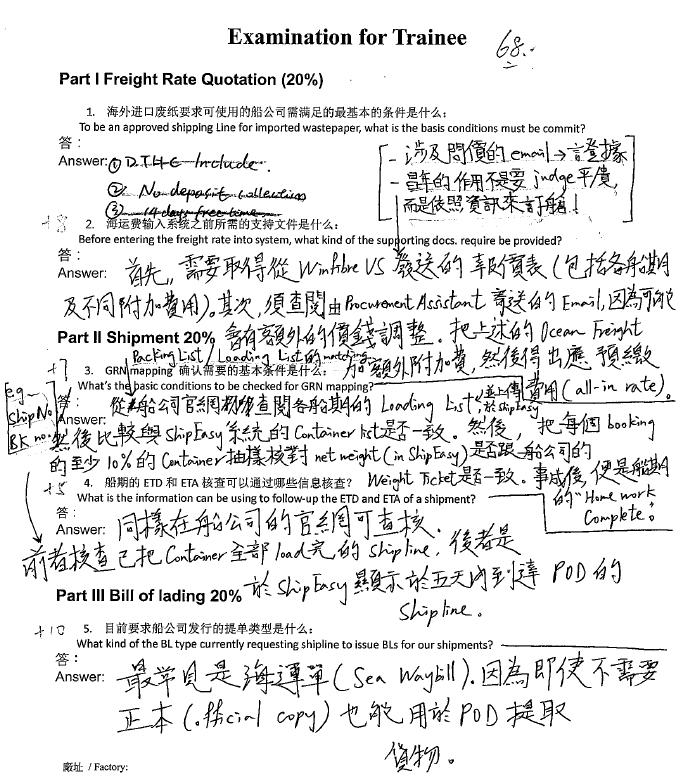 Examination for Trainee
68.
Part I Freight Rate Quotation (20%)
1. 海外进口废纸要求可使用的船公司需满足的最基本的条件是什么:
To be an approved shipping Line for imported wastepaper, what is the basis conditions must be commit?
答:
Answer: ① DTHC Include.
② No deposit collection
③ 14 days free time
- 涉及問價的email→證據
- 的作用不是要 judge 平貴,
而是依照資訊來訂艙!
+8
2. 海运费输入系统之前所需的支持文件是什么:
Before entering the freight rate into system, what kind of the supporting docs. require be provided?
答:
Answer: 首先, 需要取得從 Winfibre VS 發送的 價表 (包括各船期
及不同附加費用)。其次, 須查閱由 Procurement Assistant 寄送的 Email, 因為可能
會有額外的價錢調整。把上述的 Ocean Freight
加額外附加費, 然後得出應預繳
費用 (all-in rate)。
Part II Shipment 20%
Packing List / Loading List 的 matching
+7
3. GRN mapping 确认需要的基本条件是什么:
What's the basic conditions to be checked for GRN mapping?
e.g.
Ship No.
BK no.
答:
Answer: 從船公司官網查閱各船期的 Loading List, 並上傳於 shipeasy
然後比較與 ShipEasy 系統的 Container list 是否一致。然後, 把每個 booking
的至少 10% 的 Container 抽樣核對 net weight (in ShipEasy) 是否跟船公司的
Weight Ticket 是否一致。事成後, 便是船期
的 "Home work
Complete".
+5
4. 船期的 ETD 和 ETA 核查可以通过哪些信息核查?
What is the information can be using to follow-up the ETD and ETA of a shipment?
答:
Answer: 同樣在船公司的官網可查核.
前者核查已把 Container 全部 load 完的 shipline, 後者是
於 ShipEasy 顯示於五天內到達 POD 的
Shipline。
Part III Bill of lading 20%
+10
5. 目前要求船公司发行的提单类型是什么:
What kind of the BL type currently requesting shipline to issue BLs for our shipments?
答:
Answer: 最常見是海運單 (Sea Waybill). 因為即使不需要
正本 (official copy) 也能用於 POD 提取
貨物。
廠址 / Factory: